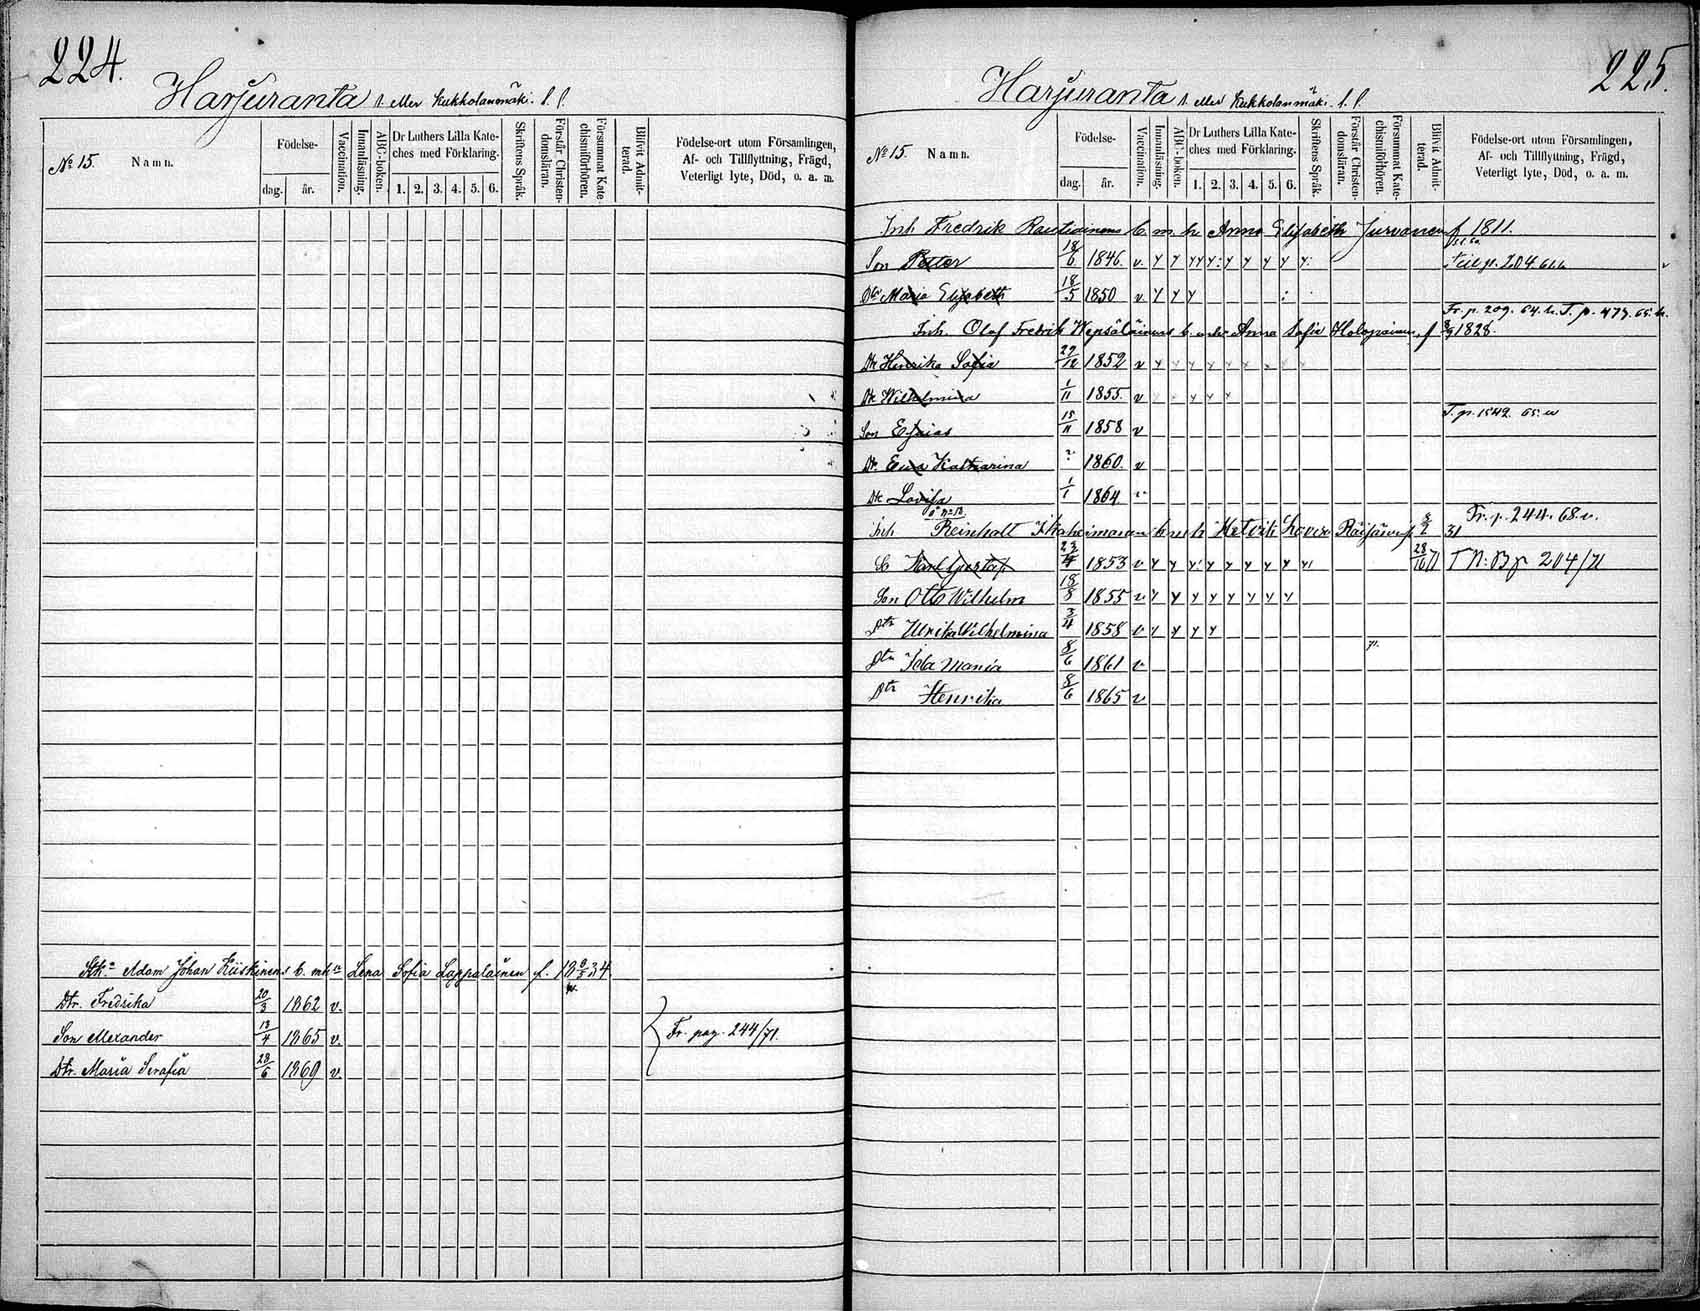 224.
Harjuranta l. eller Kukkolanmäki. l. l.
No 15. Namn.
Födelse-
dag. år.
Vaccination.
Innanläsning.
ABC-boken.
Dr Luthers Lilla Kate-
ches med Förklaring.
1. 2. 3. 4. 5. 6.
Skriftens Språk.
Förstår Christen-
domsläran.
Försummat Kate-
chismiförhören.
Blifvit Admit-
terad.
Födelse-ort utom Församlingen,
Af- och Tillflyttning, Frägd,
Veterligt lyte, Död, o. a. m.
Adam Johan Kiiskinens b. m h Lena Sofia Lappalainen f. 18 9/5 34.
Dtr. Fredrika 20/3 1862 v.
Son Alexander 13/4 1865 v. Fr. pag. 244/71.
Dtr. Maria Serafia 28/6 1869 v.
225.
Harjuranta l. eller Kukkolanmäki. l. l.
No 15. Namn.
Födelse-
dag. år.
Vaccination.
Innanläsning.
ABC-boken.
Dr Luthers Lilla Kate-
ches med Förklaring.
1. 2. 3. 4. 5. 6.
Skriftens Språk.
Förstår Christen-
domsläran.
Försummat Kate-
chismiförhören.
Blifvit Admit-
terad.
Födelse-ort utom Församlingen,
Af- och Tillflyttning, Frägd,
Veterligt lyte, Död, o. a. m.
Inh Fredrik Rautiainens b. m. h Anna Elisabeth Jurvanen f 1811.
Son Petter 18/6 1846. v. p. 204.
Dtr Maria Elisabeth 18/5 1850 v
Fr. p. 209. 64. T. p. 477. 65.
Inh. Olof Fredrik Wepsäläinens b. Anna Sofia Holopainen, f 1828.
Dtr Henrika Sofia 29/12 1852 v
Dtr Wilhelmina 1/11 1855. v
T. p. 1542. 65.
Son Esaias 15/11 1858 v
Dtr. Eva Katharina 1860. v
Dtr Lovisa 1/1 1864 v
Fr. p. 244. 68.
Inh Reinholt b m h Hetvik Lovisa f 8/2 31
Carl Gustaf 23/4 1853 v 28/10 71 T N: B p 204/71
Son Otto Wilhelm 18/8 1855 v
Dtr Ulrika Wilhelmina 3/4 1858 v
Dtr Ida Maria 8/6 1861 v
Dtr Henrika 8/6 1865 v